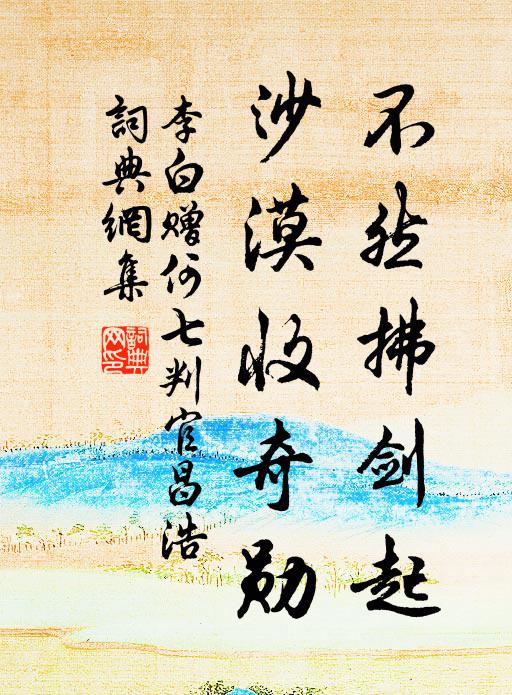 不然拂剑起
沙漠收奇勋
李白赠何七判官昌浩
詞典網集
詞典网印